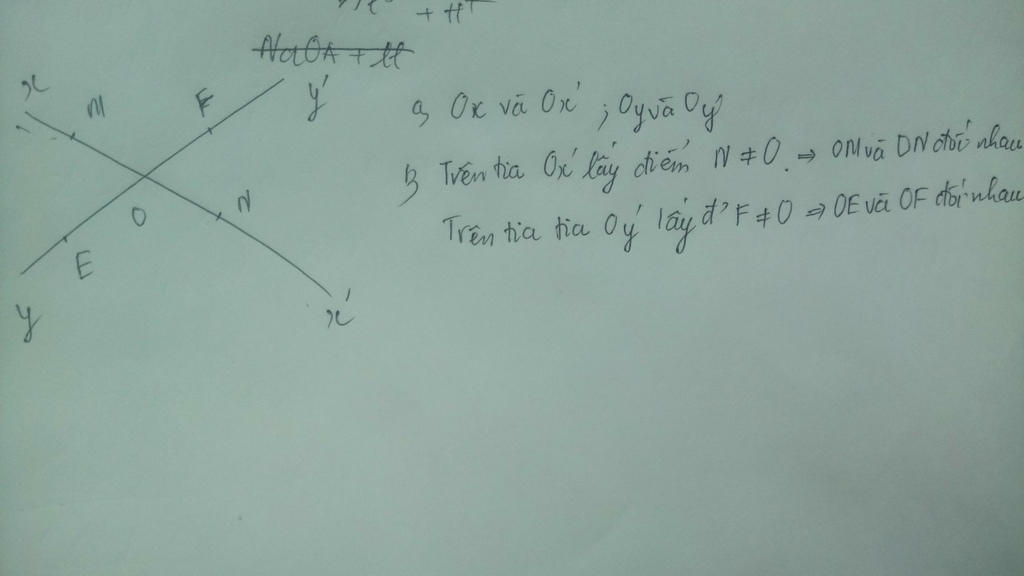 + H⁺
x
M
F
y'
a, Ox và Ox' ; Oy và Oy'
b, Trên tia Ox' lấy điểm N ≠ O. ⇒ OM và ON đối nhau
Trên tia tia Oy' lấy đ' F ≠ O ⇒ OE và OF đối nhau
N
O
E
y
x'